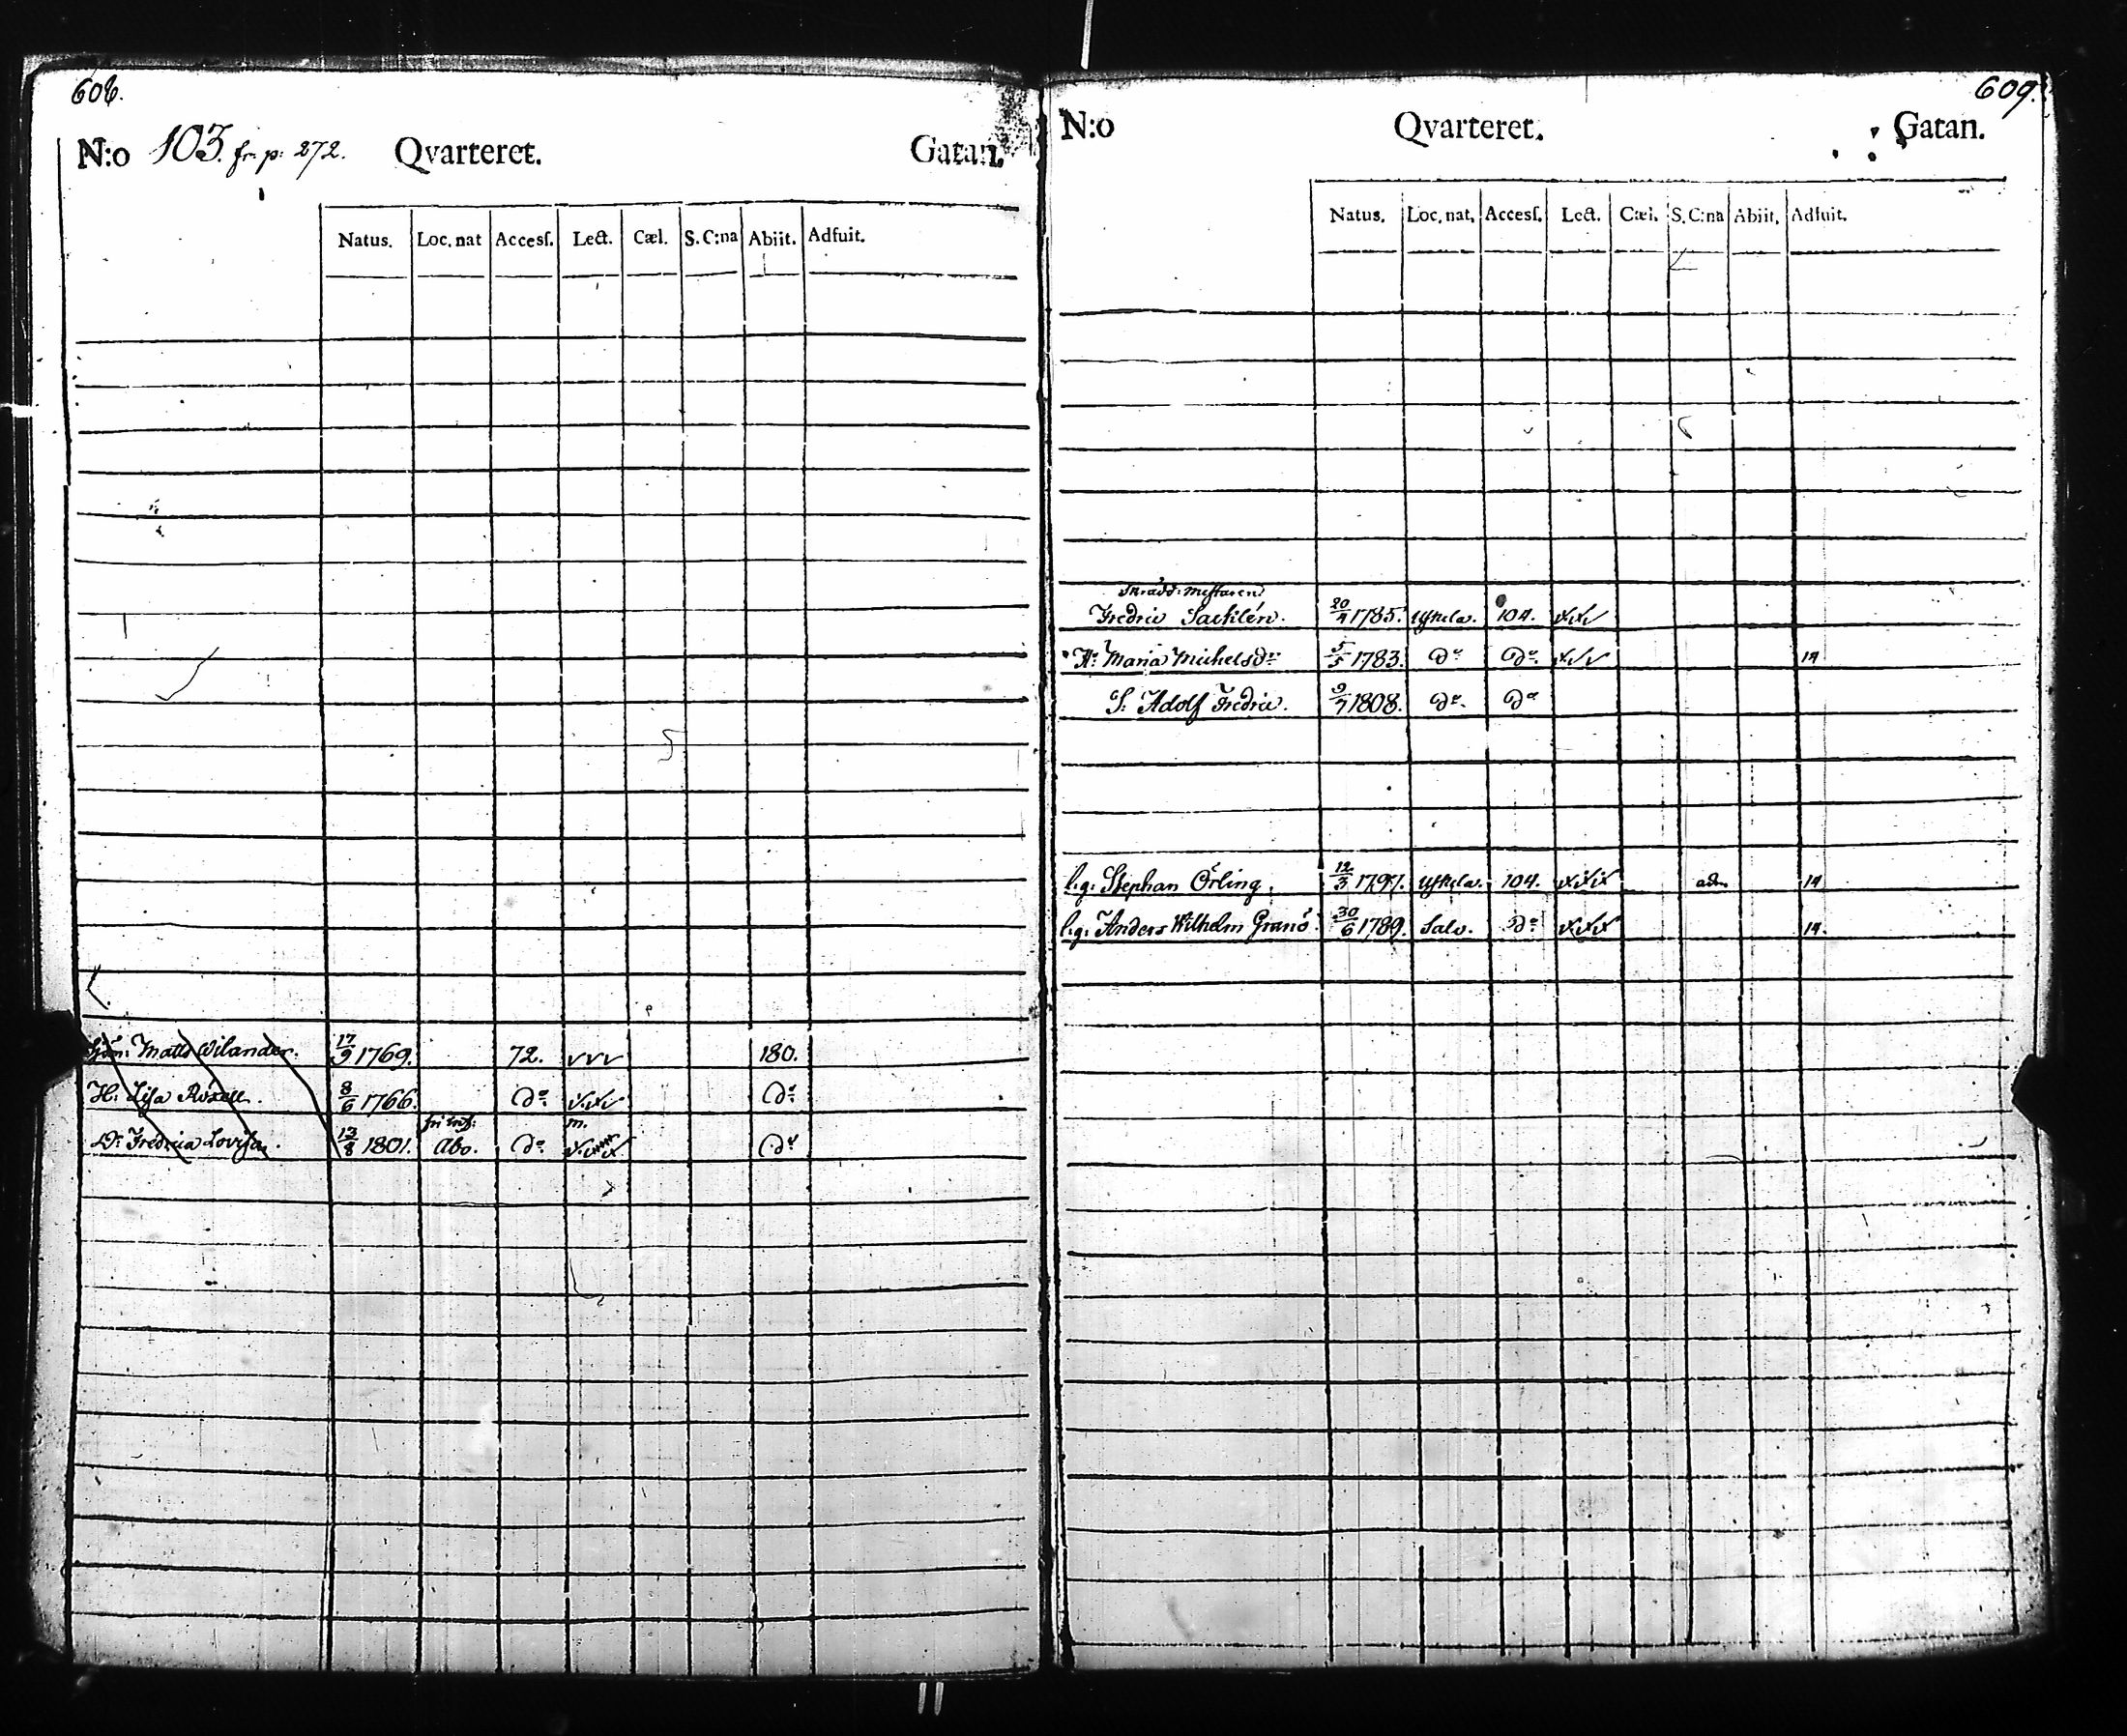 608.
N:o 103. fr. p: 272. Qvarteret. Gatan.
Natus. Loc. nat Accesſ. Lect. Cæl. S. C:na Abiit. Adfuit.
Matts Wilander. 17/9 1769. 72. 180.
H: Lisa Rosell. 8/6 1766. Do: Do:
Dr Fredrica Lovisa. 13/8 1801. Åbo. Do: m. Do
609.
N:o Qvarteret. Gatan.
Natus. Loc. nat. Accesſ. Lect. Cæl. S. C:na Abiit. Adfuit.
Skrädd: Mestaren
Fredric Sacklén. 20/7 1785. 104.
H: Maria Michelsdr 5/5 1783. Do Do: 14
S: Adolf Fredric. 9/7 1808. Do. Do
l.g. Stephan Örling. 12/3 1797. 104. adm 14
l.g. Anders Wilhelm Granö. 30/6 1789. Salo. Do: 14.